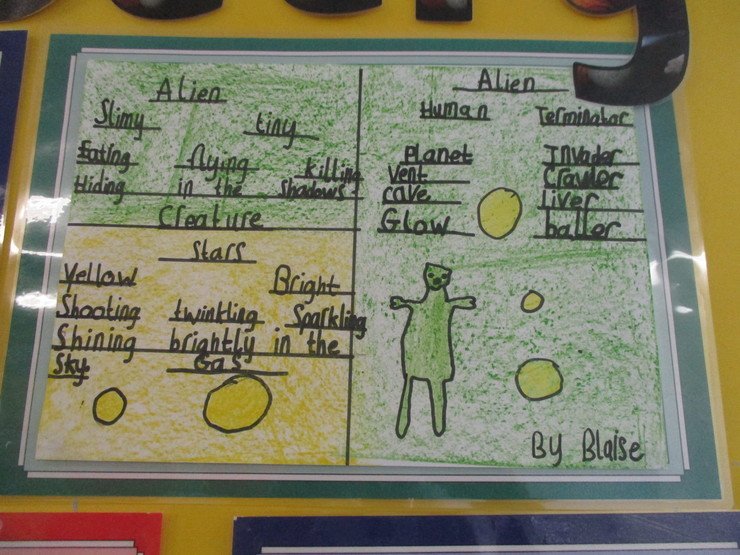 Alien
Slimy tiny
Eating flying killing
Hiding in the shadows
Creature
Stars
Yellow Bright
Shooting twinkling Sparkling
Shining brightly in the
Sky
Gas
Alien
Human Terminator
Planet Invader
Vent Crawler
cave Liver
Glow baller
By Blaise